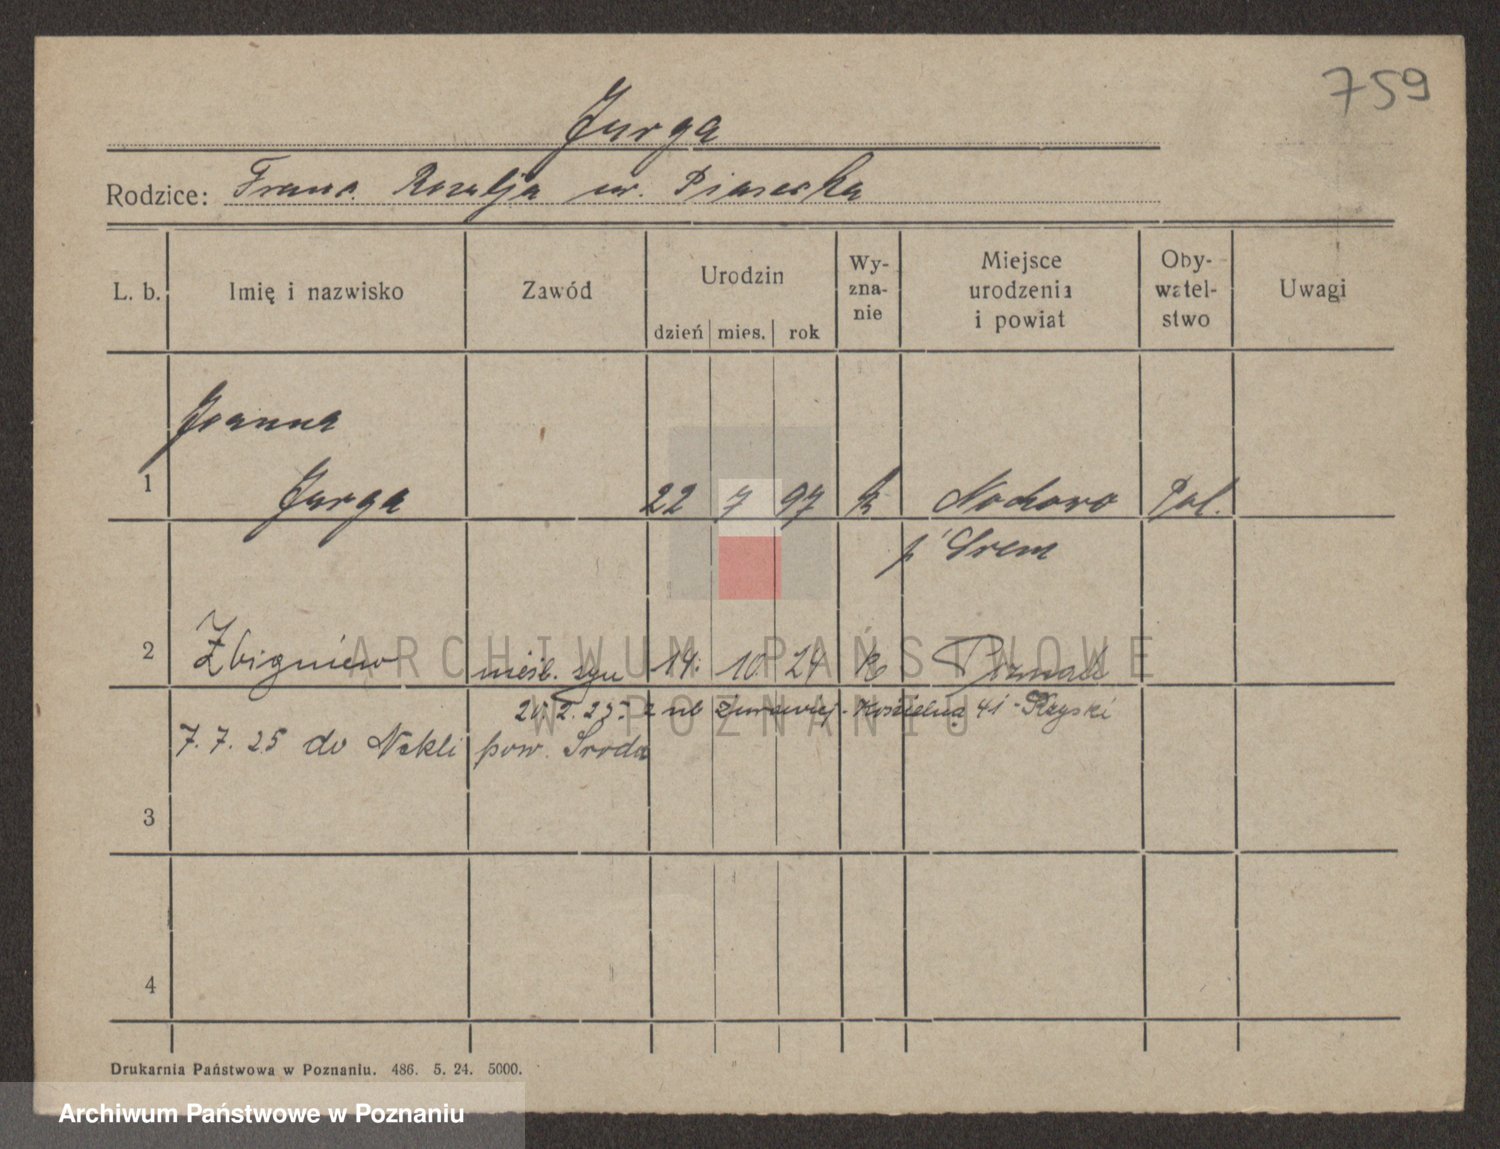 759
Jurga
Rodzice: Franc. Rozalja ur. Piasecka
L. b. Imię i nazwisko Zawód Urodzin dzień mies. rok Wy-zna-nie Miejsce urodzenia i powiat Oby-watel-stwo Uwagi
Joanna
1 Jurga 22 7 97 k Nochowo Pol.
p Srem
2 Zbigniew nieśl. syn 14. 10 24 k Poznań
ARCHIWUM PAŃSTWOWE
W POZNANIU
2.25. z ul Żurawiej - Kościelna 41 -
7. 7. 25 do Nekli pow. Sroda
3
4
Drukarnia Państwowa w Poznaniu. 486. 5. 24. 5000.
Archiwum Państwowe w Poznaniu